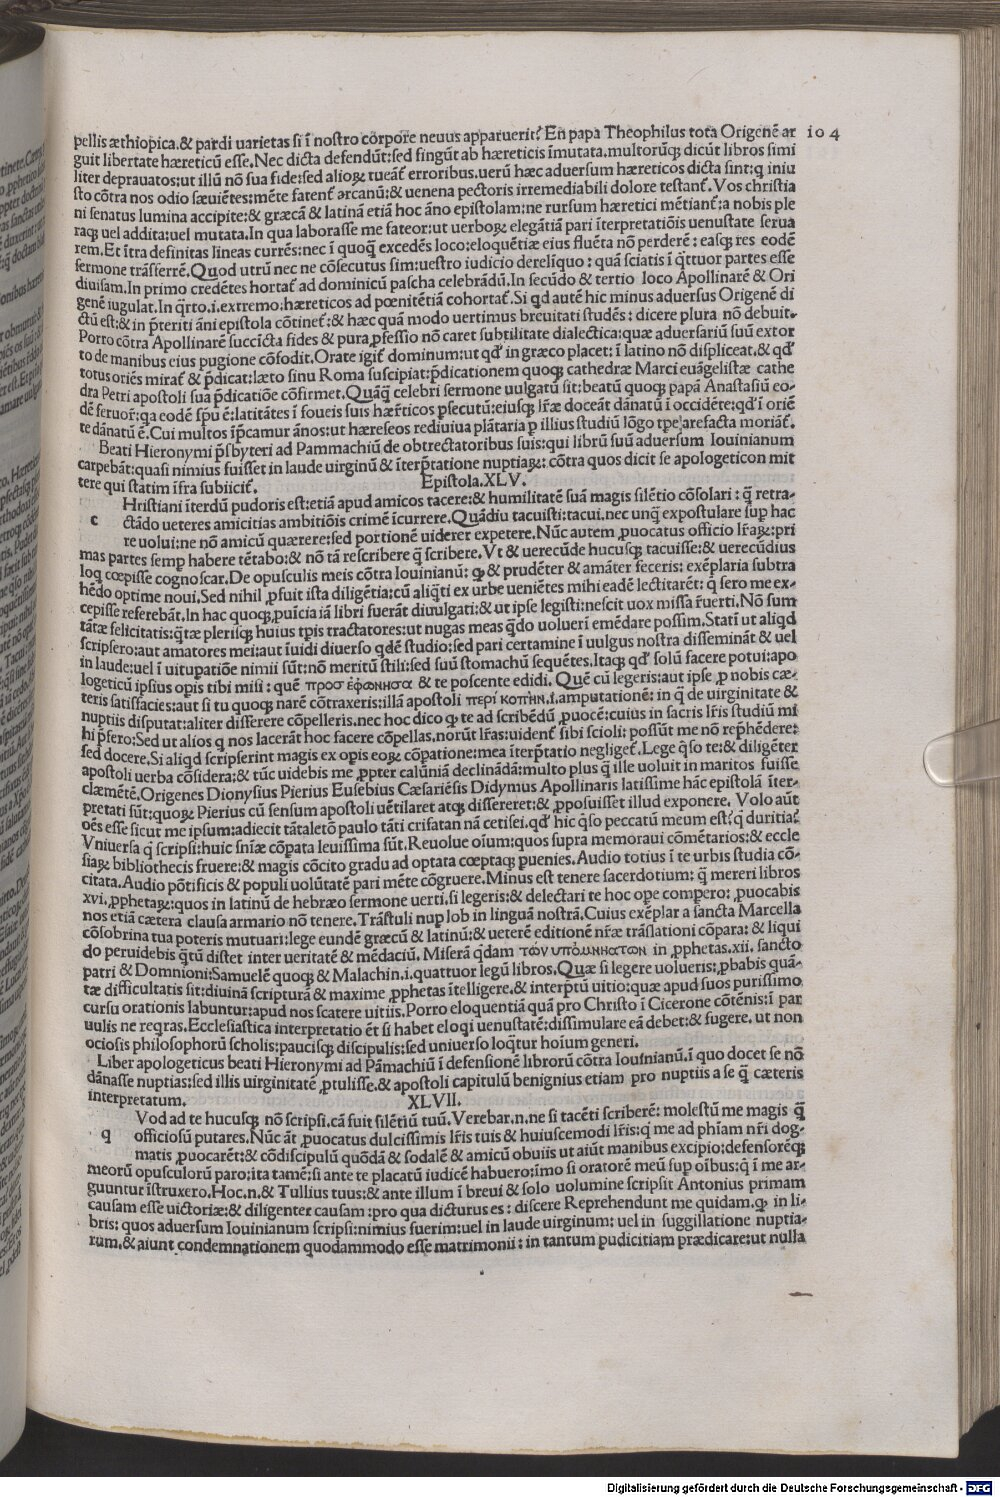 pellis æthiopica.& pardi uarietas si ī nostro corpore neuus apparuerit? En papa Theophilus tota Origenē ar 104
guit libertate hæreticū esse. Nec dicta defendūt: sed fingūt ab hæreticis īmutata. multorūq; dicūt libros simi
liter deprauatos: ut illū nō sua fide: sed alioꝝ tueāt̄ erroribus. uerū hæc aduersum hæreticos dicta sint: q̄ iniu
sto cōtra nos odio sæuiētes: mēte fatent̄ arcanū: & uenena pectoris irremediabili dolore testant̄. Vos christia
ni senatus lumina accipite: & græcā & latinā etiā hoc āno epistolam: ne rursum hæretici mētiant̄: a nobis ple
raq; uel addita: uel mutata. In qua laborasse me fateor: ut uerboꝝ elegātiā pari īterpretatiōis uenustate serua
rem. Et ītra definitas lineas currēs: nec ī quoq̄ excedēs loco: eloquētiæ eius fluēta nō perderē: easq; res eodē
sermone trāsferrē. Quod utrū nec ne cōsecutus sim: uestro iudicio derelīquo: quā sciatis ī q̄ttuor partes esse
diuisam. In primo credētes hortat̄ ad dominicū pascha celebrādū. In secūdo & tertio loco Apollinarē & Ori
genē iugulat. In q̄rto.i. extremo: hæreticos ad pœnitētiā cohortat̄. Si qd autē hic minus aduersus Origenē di
ctū est: & in p̄teriti āni epistola cōtinet̄: & hæc quā modo uertimus breuitati studēs: dicere plura nō debuit.
Porro cōtra Apollinarē succīcta fides & pura ꝓfessio nō caret subtilitate dialectica: quæ aduersariū suū extor
to de manibus eius pugione cōfodit. Orate igit̄ dominum: ut qd̄ in græco placet: ī latino nō displiceat. & qd̄
totus oriēs mirat̄ & p̄dicat: læto sinu Roma suscipiat: p̄dicationem quoq; cathedræ Marci euāgelistæ cathe
dra Petri apostoli sua p̄dicatiōe cōfirmet. Quāq̄ celebri sermone uulgatū sit: beatū quoq; papā Anastasiū eo-
dē feruor̄: qa eodē sp̄u ē: latitātes ī foueis suis hær̄ticos ꝑsecutū: eiusq; lr̄æ doceāt dānatū ī occidēte: qd̄ ī oriē
te dānatū ē. Cui multos īp̄camur ānos: ut hæreseos rediuiua plātaria ꝑ illius studiū lōgo tpe arefacta moriāt̄.
Beati Hieronymi p̄sbyteri ad Pammachiū de obtrectatoribus suis: qui librū suū aduersum Iouinianum
carpebāt: quasi nimius fuisset in laude uirginū & īterp̄tatione nuptiaꝝ: cōtra quos dicit se apologeticon mit
tere qui statim īfra subiicit̄. Epistola.XLV.
Hristiani īterdū pudoris est: etiā apud amicos tacere: & humilitatē suā magis silētio cōsolari: q̄ retra-
c ctādo ueteres amicitias ambitiōis crimē īcurrere. Quādiu tacuisti: tacui. nec unq̄ expostulare suꝑ hac
re uolui: ne nō amicū quærere: sed portionē uiderer expetere. Nūc autem ꝓuocatus officio lr̄aꝝ: pri
mas partes semp habere tētabo: & nō tā rescribere q̄ scribere. Vt & uerecūde hucusq; tacuisse: & uerecūdius
loq̄ cœpisse cognoscar. De opusculis meis cōtra Iouinianū: ꝙ & prudēter & amāter feceris: exēplaria subtra
hēdo optime noui. Sed nihil ꝓfuit ista diligētia: cū aliq̄ti ex urbe ueniētes mihi eadē lectitarēt: q̄ sero me ex-
cepisse referebāt. In hac quoq; ꝓuīcia iā libri fuerāt diuulgati: & ut ipse legisti: nescit uox missa r̄uerti. Nō sum
tātæ felicitatis: q̄tæ pleriq; huius tp̄is tractatores: ut nugas meas q̄do uoluerī emēdare possim. Statī ut aliqd
scripsero: aut amatores mei: aut īuidi diuerso qdē studio: sed pari certamine ī uulgus nostra disseminat & uel
in laude: uel ī uitupatiōe nimii sūt: nō meritū stili: sed suū stomachū sequētes. Itaq; qd̄ solū facere potui: apo
logeticū ipsius opis tibi misi: quē προσ εφωνησα & te poscente edidi. Quē cū legeris: aut ipse ꝓ nobis cæ-
teris satisfacies: aut si tu quoq; narē cōtraxeris: illā apostoli περί κοπήν.i. amputationē: in q̄ de uirginitate &
nuptiis disputat: aliter disserere cōpelleris. nec hoc dico ꝙ te ad scribēdū ꝓuocē: cuius in sacris lr̄is studiū mi
hi p̄fero: Sed ut alios q̄ nos lacerāt hoc facere cōpellas. norūt lr̄as: uident̄ sibi scioli: possūt me nō rep̄hēdere:
sed docere. Si aliqd scripserint magis ex opis eoꝝ cōpatione: mea īterp̄tatio negliget̄. Lege q̄so te: & diligēter
apostoli uerba cōsidera: & tūc uidebis me ꝓpter calūniā declinādā: multo plus q̄ ille uoluit in maritos fuisse
clæmētē. Origenes Dionysius Pierius Eusebius Cæsariēsis Didymus Apollinaris latissime hāc epistolā īter-
pretati sūt: quoꝝ Pierius cū sensum apostoli uētilaret atq; dissereret: & ꝓposuisset illud exponere. Volo aūt
oēs esse sicut me ipsum: adiecit
Vniuersa q̄ scripsi: huic sn̄iæ cōpata leuissima sūt. Reuolue oīum: quos supra memoraui cōmētarios: & eccle
siaꝝ bibliothecis fruere: & magis cōcito gradu ad optata cœptaq; puenies. Audio totius ī te urbis studia cō-
citata. Audio pōtificis & populi uolūtatē pari mēte cōgruere. Minus est tenere sacerdotium: q̄ mereri libros
xvi. ꝓphetaꝝ: quos in latinū de hebræo sermone uerti. si legeris: & delectari te hoc ope compero: ꝓuocabis
nos etiā cætera clausa armario nō tenere. Trāstuli nuꝑ Iob in linguā nostrā. Cuius exēplar a sancta Marcella
cōsobrina tua poteris mutuari: lege eundē græcū & latinū: & ueterē editionē nr̄æ trāslationi cōpara: & liqui
do peruidebis q̄tū distet inter ueritatē & mēdaciū. Miserā q̄dam τών υπὸμνηατων in ꝓphetas.xii. sancto
patri & Domnioni: Samuelē quoq; & Malachin.i. quattuor legū libros. Quæ si legere uolueris: ꝓbabis quā-
tæ difficultatis sit: diuinā scripturā & maxime ꝓphetas ītelligere. & interp̄tū uitio: quæ apud suos purissimo
cursu orationis labuntur: apud nos scatere uitiis. Porro eloquentiā quā pro Christo ī Cicerone cōtēnis: ī par
uulis ne reqras. Ecclesiastica interpretatio ēt si habet eloqi uenustatē: dissimulare eā debet: & fugere. ut non
ociosis philosophorū scholis: paucisq; discipulis: sed uniuerso loq̄tur hoīum generi.
Liber apologeticus beati Hieronymi ad Pāmachiū ī defensionē librorū cōtra Iouinianū. ī quo docet se nō
dānasse nuptias: sed illis uirginitatē ꝓtulisse. & apostoli capitulū benignius etiam pro nuptiis a se q̄ cæteris
interpretatum. XLVII.
Vod ad te hucusq; nō scripsi. cā fuit silētiū tuū. Verebar.n. ne si tacēti scriberē: molestū me magis q̄
q officiosū putares. Nūc āt ꝓuocatus dulcissimis lr̄is tuis & huiuscemodi lr̄is: q̄ me ad phīam nr̄i dog-
matis ꝓuocarēt: & cōdiscipulū quōdā & sodalē & amicū obuiis ut aiūt manibus excipio: defensorēq;
meorū opusculorū paro: ita tamē: si ante te placatū iudicē habuero: īmo si oratorē meū sup oībus: q̄ ī me ar-
guuntur īstruxero. Hoc.n. & Tullius tuus: & ante illum ī breui & solo uolumine scripsit Antonius primam
causam esse uictoriæ: & diligenter causam: pro qua dicturus es: discere Reprehendunt me quidam. ꝙ in li-
bris: quos aduersum Iouinianum scripsi: nimius fuerim: uel in laude uirginum: uel in suggillatione nuptia-
rum. & aiunt condemnationem quodammodo esse matrimonii: in tantum pudicitiam prædicare: ut nulla
Digitalisierung gefördert durch die Deutsche Forschungsgemeinschaft - DFG